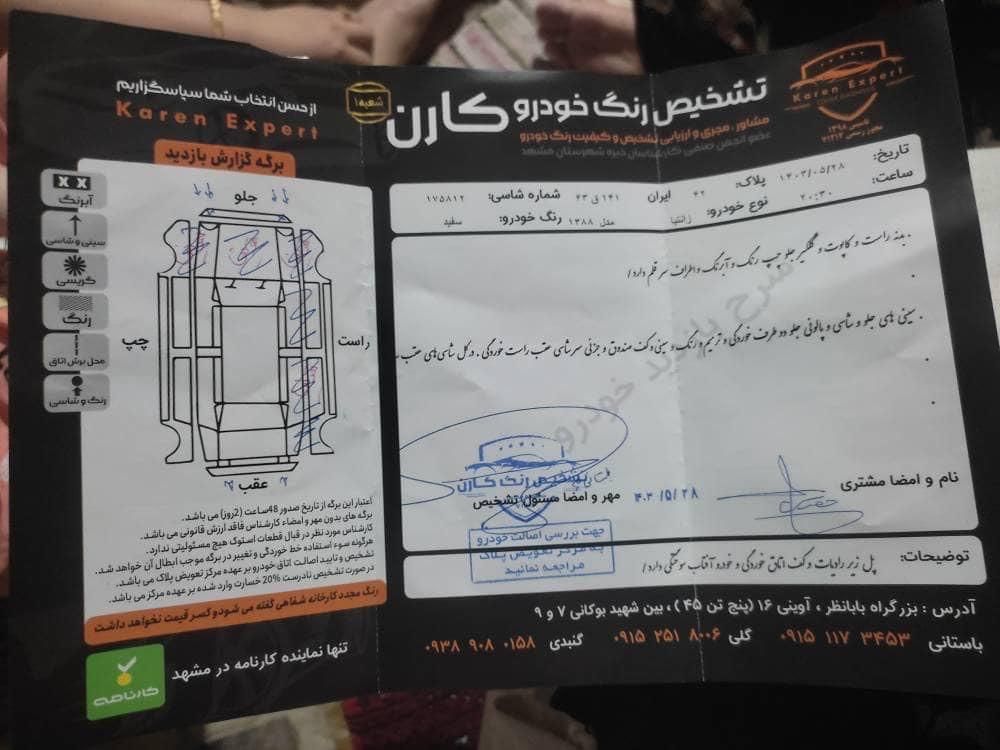 تشخیص رنگ خودرو کارن
مشاور، مجری و ارزیابی تشخیص و کیفیت رنگ خودرو
عضو انجمن صنفی کارشناسان خبره شهرستان مشهد
Karen Expert
تاسیس ۱۳۹۸
شعبه ۱
از حسن انتخاب شما سپاسگزاریم
Karen Expert
برگه گزارش بازدید
تاریخ: ۱۴۰۳/۰۵/۲۸
ساعت: ۲۰:۳۰
پلاک: ۴۲ ایران ۱۴۱ ق ۴۳
شماره شاسی: ۱۷۵۸۱۲
نوع خودرو: زانتیا مدل ۱۳۸۸
رنگ خودرو: سفید
بدنه راست و کاپوت و گلگیر جلو چپ رنگ و آبرنگ و اطراف سر قلم دارد/
سینی های جلو و شاسی و پالونی جلو دو طرف خوردگی و ترمیم و رنگ و سینی و کف صندوق و جزئی سر شاسی عقب راست خوردگی . در کل شاسی های عقب
شرح بازدید خودرو
نام و امضا مشتری
۱۴۰۳/۵/۲۸
مهر و امضا مسئول تشخیص
تشخیص رنگ کارن
جهت بررسی اصالت خودرو
به مرکز تعویض پلاک
مراجعه نمائید
توضیحات: پل زیر رادیات و کف اتاق خوردگی و خودرو آفتاب سوختگی دارد/
آبرنگ
سینی و شاسی
گریسی
رنگ
محل برش اتاق
رنگ و شاسی
جلو
راست
چپ
عقب
اعتبار این برگه از تاریخ صدور 48ساعت (2روز) می باشد.
برگه های بدون مهر و امضاء کارشناس فاقد ارزش قانونی می باشد.
کارشناس مورد نظر در قبال قطعات استوک هیچ مسئولیتی ندارد.
هرگونه سوء استفاده خط خوردگی و تغییر در برگه موجب ابطال آن خواهد شد.
تشخیص و تایید اصالت اتاق خودرو بر عهده مرکز تعویض پلاک می باشد.
در صورت تشخیص نادرست 20% خسارت وارد شده بر عهده مرکز می باشد.
رنگ مجدد کارخانه شفاهی گفته می شود و کسر قیمت نخواهد داشت
آدرس : بزرگراه بابانظر ، آوینی ۱۶ (پنج تن ۴۵) ، بین شهید بوکانی ۷ و ۹
باستانی ۰۹۱۵ ۱۱۷ ۳۴۵۳ گلی ۰۹۱۵ ۲۵۱ ۸۰۰۶ گنبدی ۰۹۳۸ ۹۰۸ ۰۱۵۸
تنها نماینده کارنامه در مشهد
کارنامه